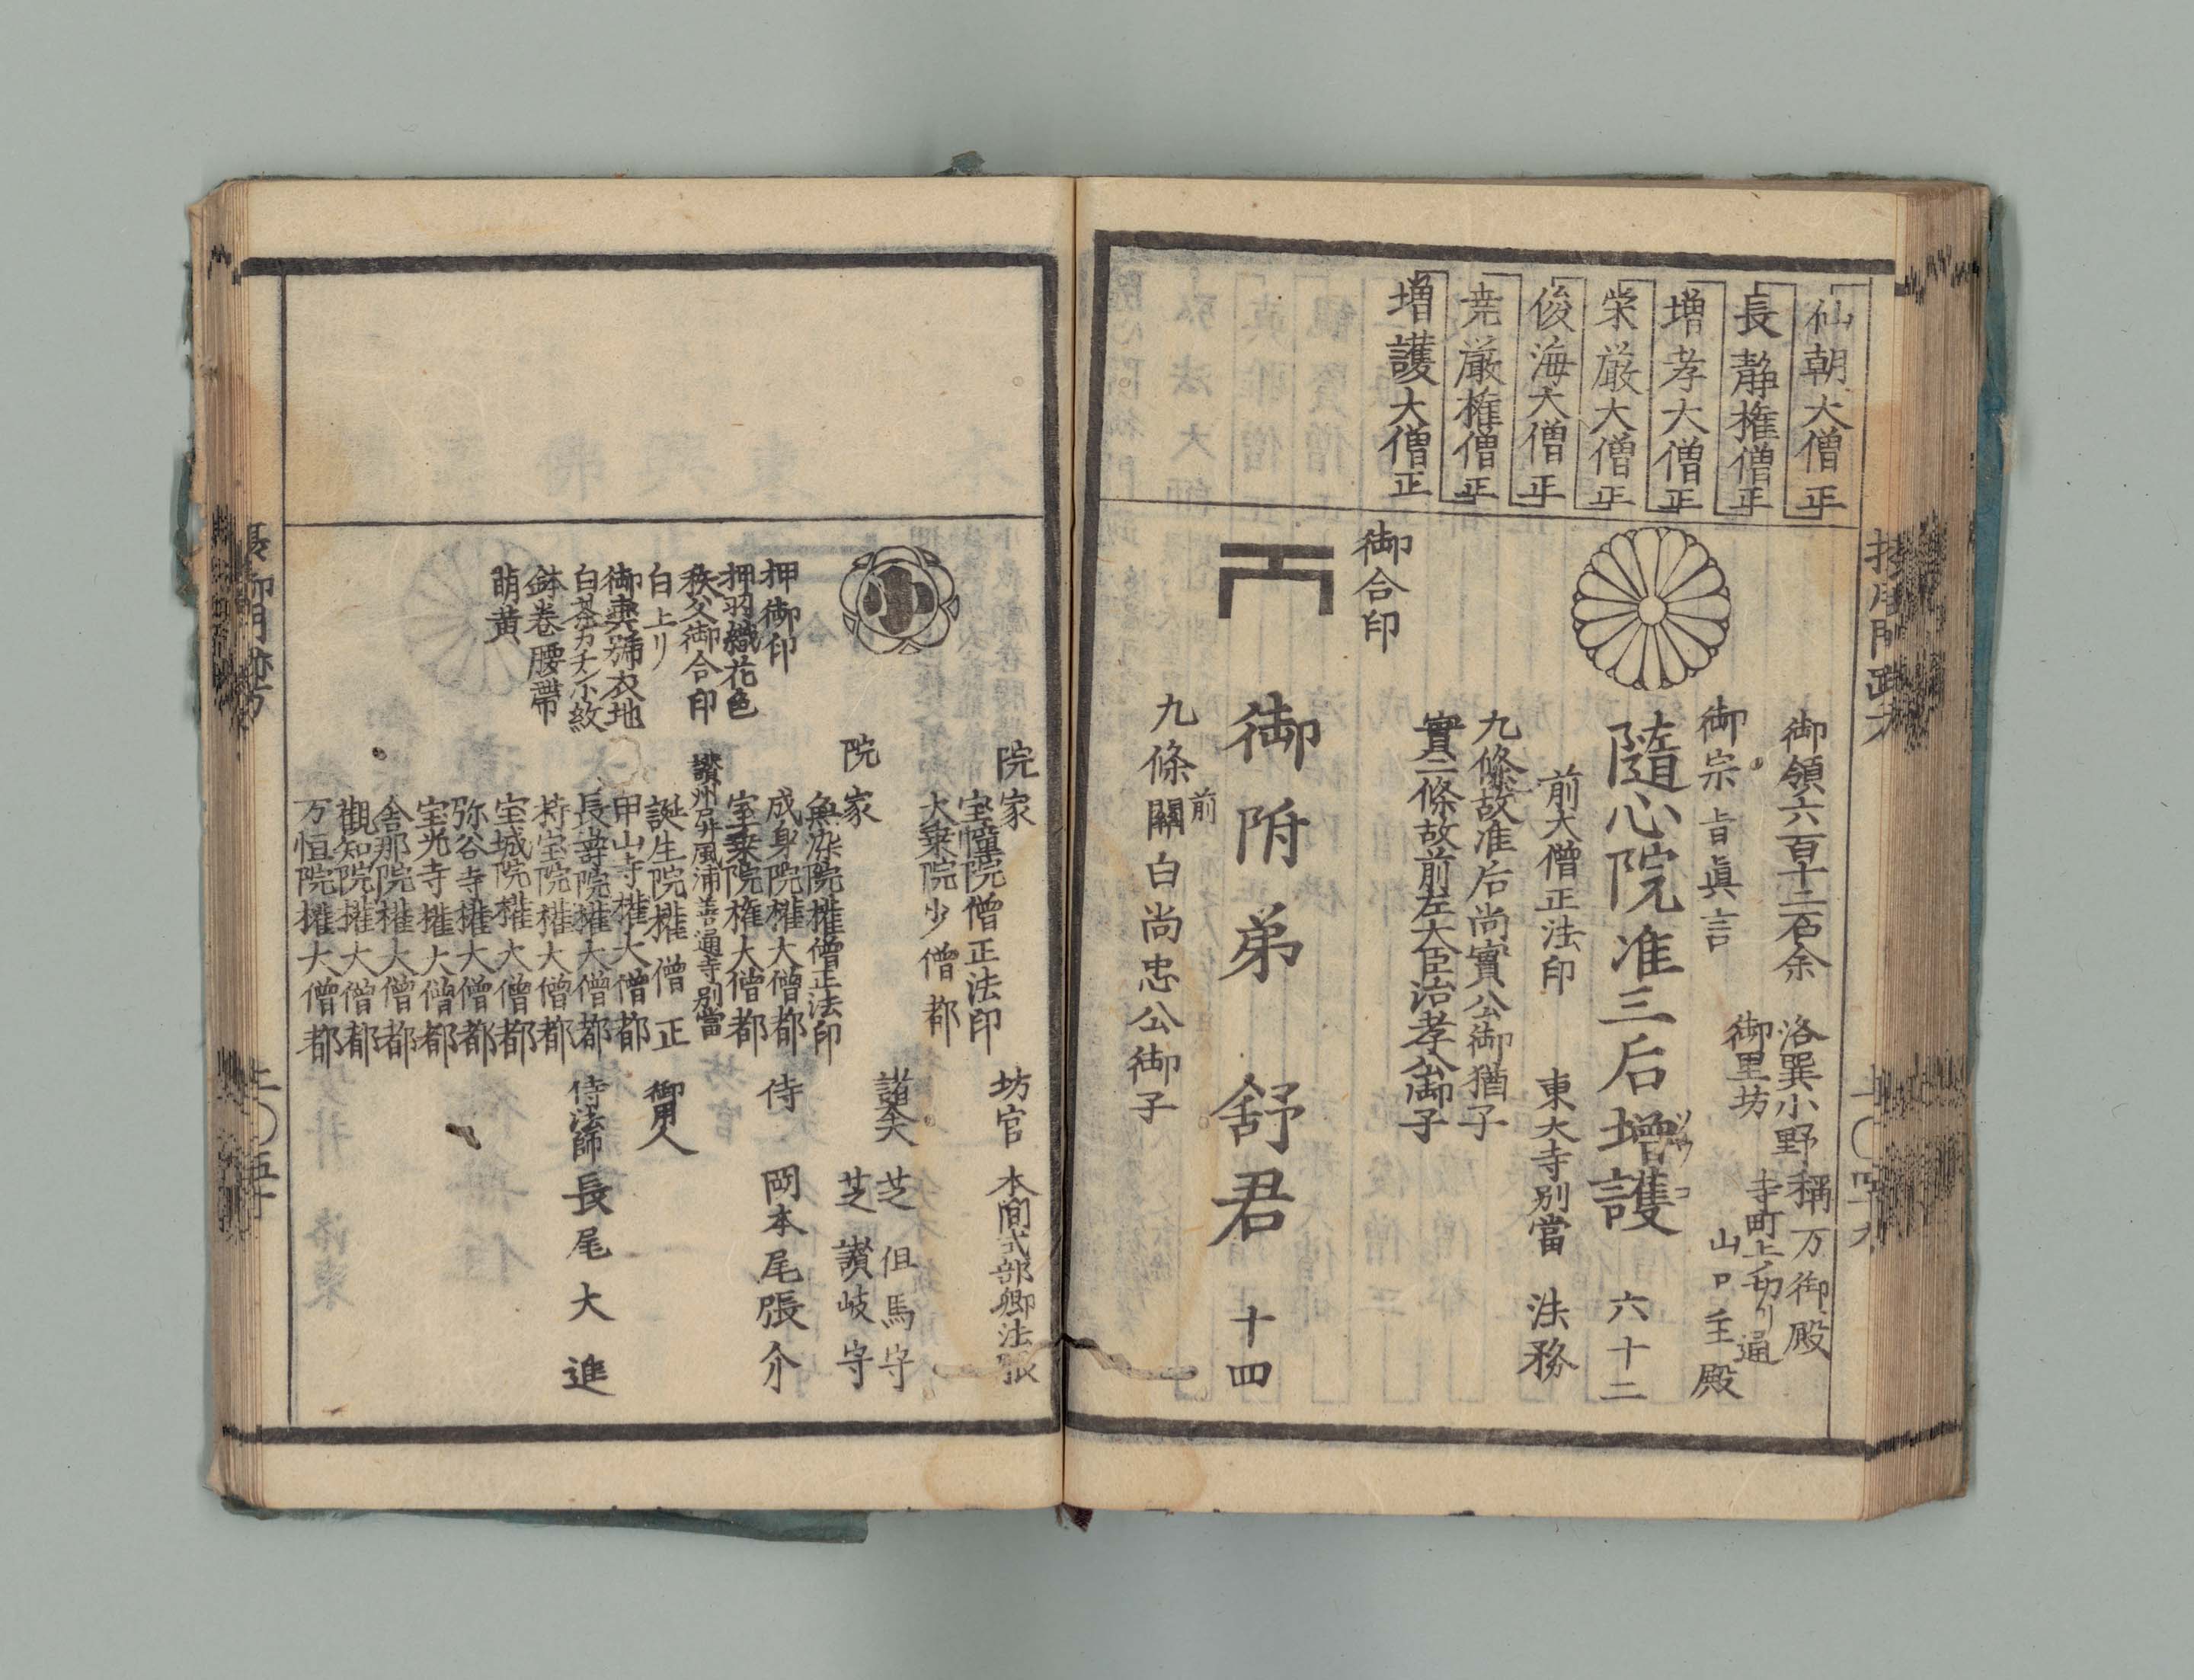 仙朝大僧正
長静権僧正
増孝大僧正
栄厳大僧正
俊海大僧正
尭厳権僧正
増護大僧正
御領六百十二石余
洛巽小野
称万御殿
御里坊
寺町上ノ切リ通
山口壬殿
御宗旨眞言
隨心院准三后増護
ゾウゴ
六十二
前大僧正法印
東大寺別當
法務
九條故准后尚實公御猶子
實二條故前左大臣治孝公御子
御合印
御附弟
舒君
十四
前
九條關白尚忠公御子
院家
宝幢院僧正法印
大乗院少僧都
坊官
本間式部卿法眼
諸大夫
芝但馬守
芝讃岐守
小
押御印
押羽織花色
秩父御合印
白上リ
御輿舁衣地
白茶カチン小紋
鉢巻腰帯
萌黄
院家
魚染院権僧正法印
成身院権大僧都
宝乗院権大僧都
讃州屏風浦善通寺別當
誕生院権僧正
甲山寺権大僧都
長壽院権大僧都
持宝院権大僧都
宝城院権大僧都
弥谷寺権大僧都
宝光寺権大僧都
舎那院権大僧都
觀知院権大僧都
万恒院権大僧都
侍
岡本尾張介
御用人
侍法師
長尾大進